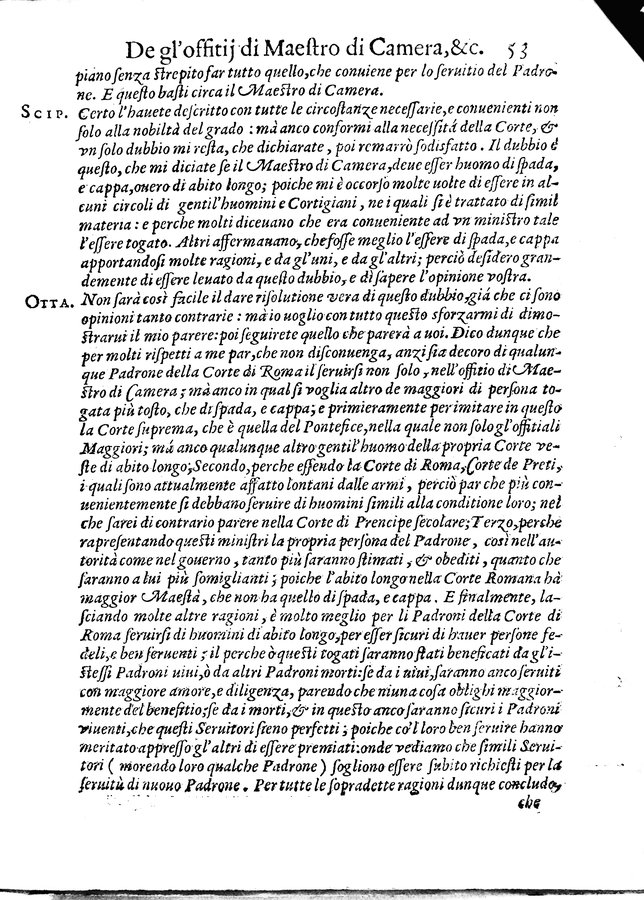 De gl'offitij di Maeſtro di Camera,&c. 53
piano ſenza ſtrepito far tutto quello,che conuiene per lo ſeruitio del Padro-
ne. E queſto baſti circa il Maeſtro di Camera.
SCIP. Certo l'hauete deſcritto con tutte le circoſtanze neceſſarie,e conuenienti non
ſolo alla nobiltà del grado : mà anco conformi alla neceſſitá della Corte, &
vn ſolo dubbio mi reſta, che dichiarate, poi remarrò ſodisfatto. Il dubbio è
queſto, che mi diciate ſe il Maeſtro di Camera,deue eſſer huomo di ſpada,
e cappa,ouero di abito longo; poiche mi è occorſo molte uolte di eſſere in al-
cuni circoli di gentil'huomini e Cortigiani, ne i quali ſi è trattato di ſimil
materia : e perche molti diceuano che era conueniente ad vn miniſtro tale
l'eſſere togato. Altri affermauano, che foſſe meglio l'eſſere di ſpada,e cappa
apportandoſi molte ragioni, e da gl'uni, e da gl'altri; perciò deſidero gran-
demente di eſſere leuato da queſto dubbio, e di ſapere l'opinione voſtra.
OTTA. Non ſarà così facile il dare riſolutione vera di queſto dubbio,giá che ci ſono
opinioni tanto contrarie : mà io uoglio con tutto queſto sforzarmi di dimo-
ſtrarui il mio parere:poi ſeguirete quello che parerà a uoi. Dico dunque che
per molti riſpetti a me par,che non diſconuenga, anzi ſia decoro di qualun-
que Padrone della Corte di Roma il ſeruirſi non ſolo , nell'offitio di Mae-
ſtro di Camera ; mà anco in qual ſi voglia altro de maggiori di perſona to-
gata più toſto, che di ſpada, e cappa; e primieramente per imitare in queſto
la Corte ſuprema, che è quella del Pontefice,nella quale non ſolo gl'offitiali
Maggiori; má anco qualunque altro gentil'huomo della propria Corte ve-
ſte di abito longo; Secondo,perche eſſendo la Corte di Roma, Corte de Preti,
i quali ſono attualmente affatto lontani dalle armi , perciò par che più con-
uenientemente ſi debbano ſeruire di huomini ſimili alla conditione loro; nel
che ſarei di contrario parere nella Corte di Prencipe ſecolare; Terzo,perche
rapreſentando queſti miniſtri la propria perſona del Padrone , così nell'au-
torità come nel gouerno , tanto più ſaranno ſtimati , & obediti, quanto che
ſaranno a lui più ſomiglianti ; poiche l'abito longo nella Corte Romana hà
maggior Maeſtà , che non ha quello di ſpada, e cappa . E finalmente, la-
ſciando molte altre ragioni , è molto meglio per li Padroni della Corte di
Roma ſeruirſi di huomini di abito longo,per eſſer ſicuri di hauer perſone fe-
deli,e ben ſeruenti ; il perche ò queſti togati ſaranno ſtati beneficati da gl'i-
ſteſſi Padroni uiui,ò da altri Padroni morti:ſe da i uiui,ſaranno anco ſeruiti
con maggiore amore,e diligenza, parendo che niuna coſa oblighi maggior-
mente del benefitio;ſe da i morti,& in queſto anco ſaranno ſicuri i Padroni
viuenti,che queſti Seruitori ſieno perfetti ; poiche co'l loro ben ſeruire hanno
meritato appreſſo gl'altri di eſſere premiati:onde vediamo che ſimili Serui-
tori ( morendo loro qualche Padrone ) ſogliono eſſere ſubito richieſti per la
ſeruitù di nuouo Padrone . Per tutte le ſopradette ragioni dunque concludo,
che